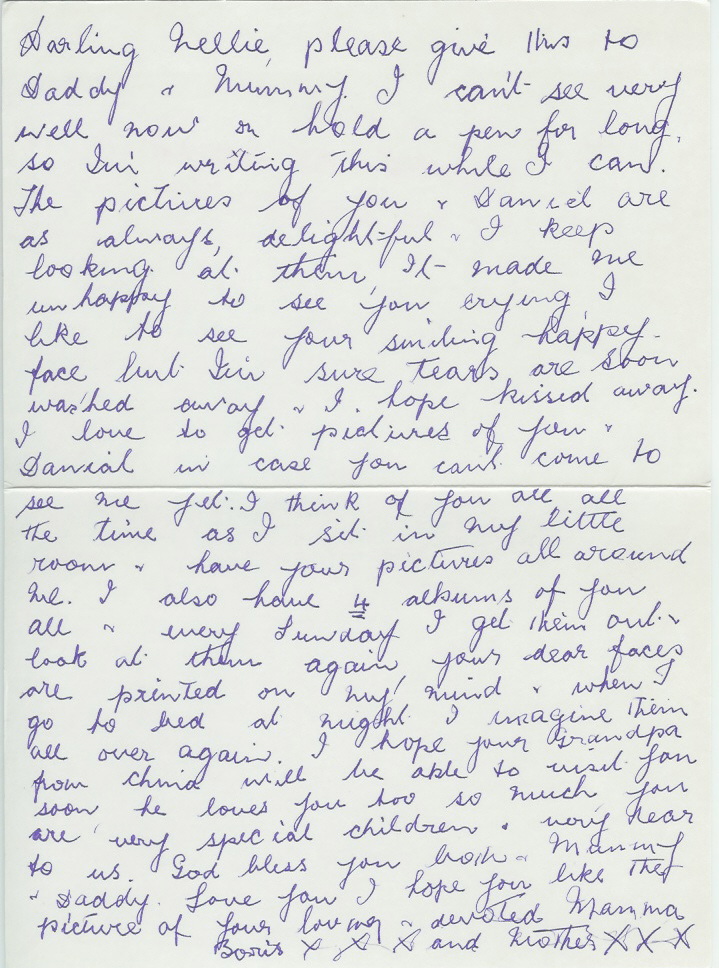 Darling Nellie, please give this to
Daddy & Mummy. I can't see very
well now or hold a pen for long,
so I'm writing this while I can.
The pictures of you & Daniel are
as always, delightful & I keep
looking at them. It made me
unhappy to see you crying I
like to see your smiling happy
face but I'm sure tears are soon
washed away & I hope kissed away.
I love to get pictures of you &
Danial in case you can't come to
see me yet. I think of you all all
the time as I sit in my little
room & have your pictures all around
me. I also have 4 albums of you
all & every Sunday I get them out &
look at them again your dear faces
are printed on my mind & when I
go to bed at night I imagine them
all over again. I hope your Grandpa
from china will be able to visit you
soon he loves you too so much you
are very special children & very dear
to us. God bless you both & Mammy
& Daddy. Love you I hope you like the
picture of your loving & devoted Mamma
X X X and Mother X X X